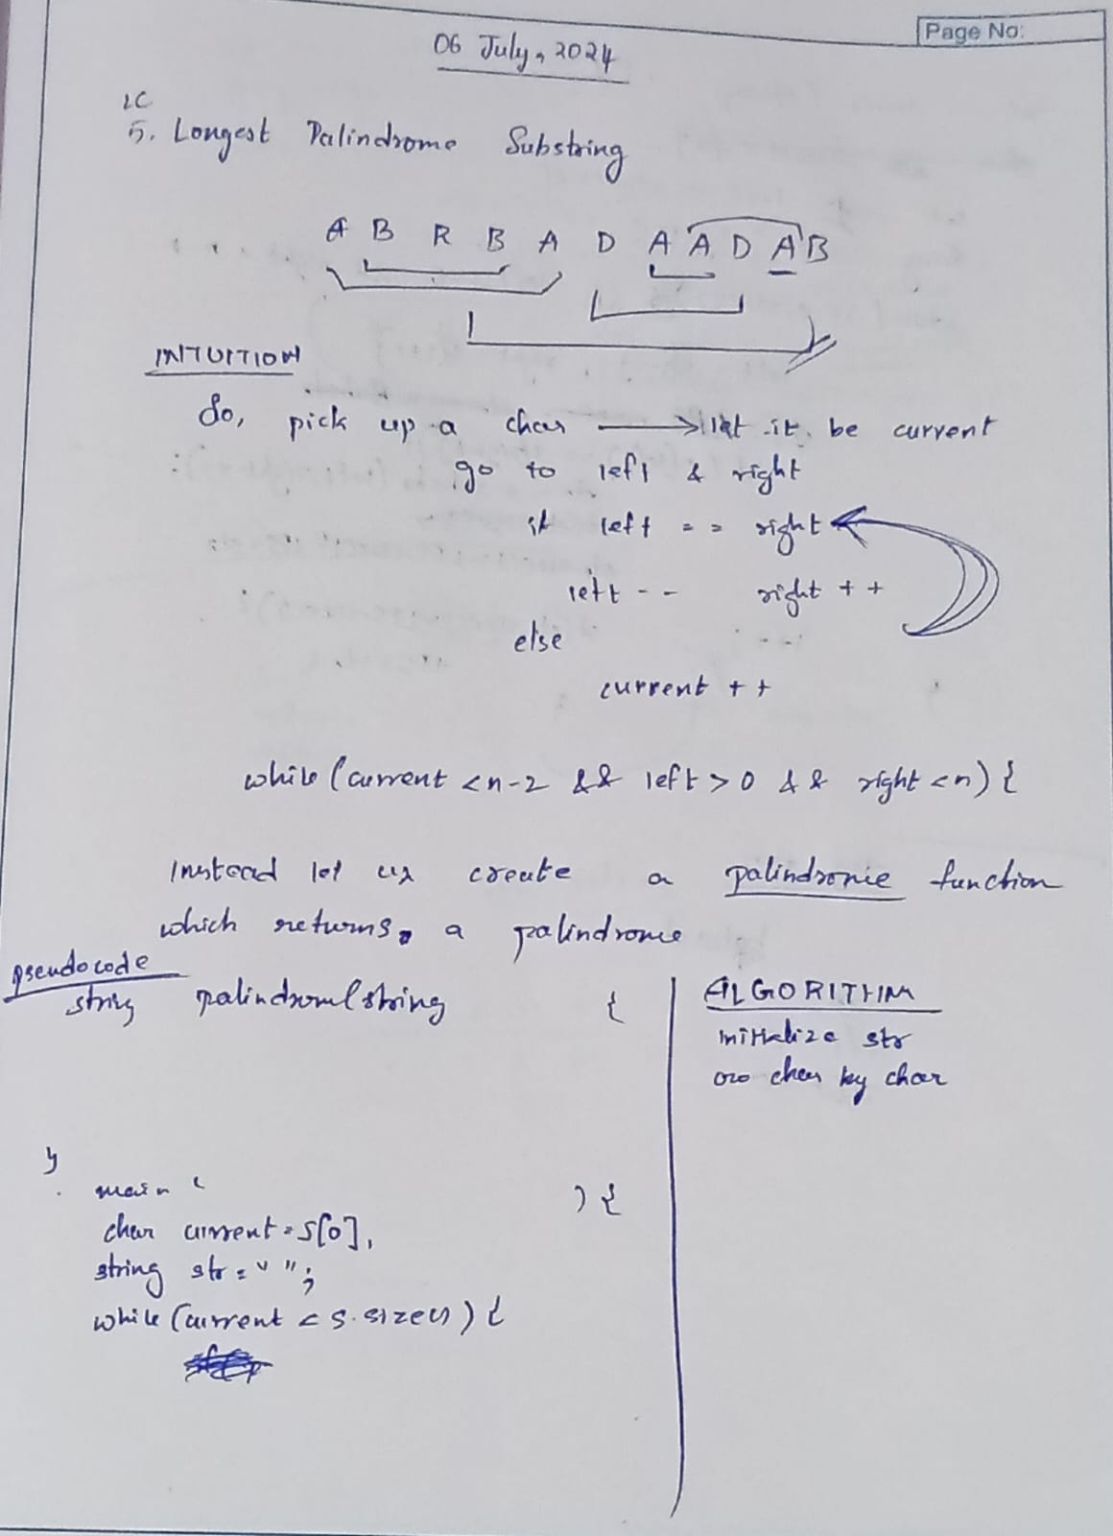 Page No:
06 July, 2024
LC
5. Longest Palindrome Substring
A B R B A D A A D A B
INTUITION
So, pick up a char → let it be current
go to left & right
if left == right
left -- right ++
else
current ++
while (current <n-2 && left > 0 && right <n) {
Instead let us create a palindrome function
which returns a palindrome
pseudocode
string palindrome(string {
}
main ( ) {
char current = s[0],
string str = " ";
while (current < s.size()) {
ALGORITHM
initialize str
char by char